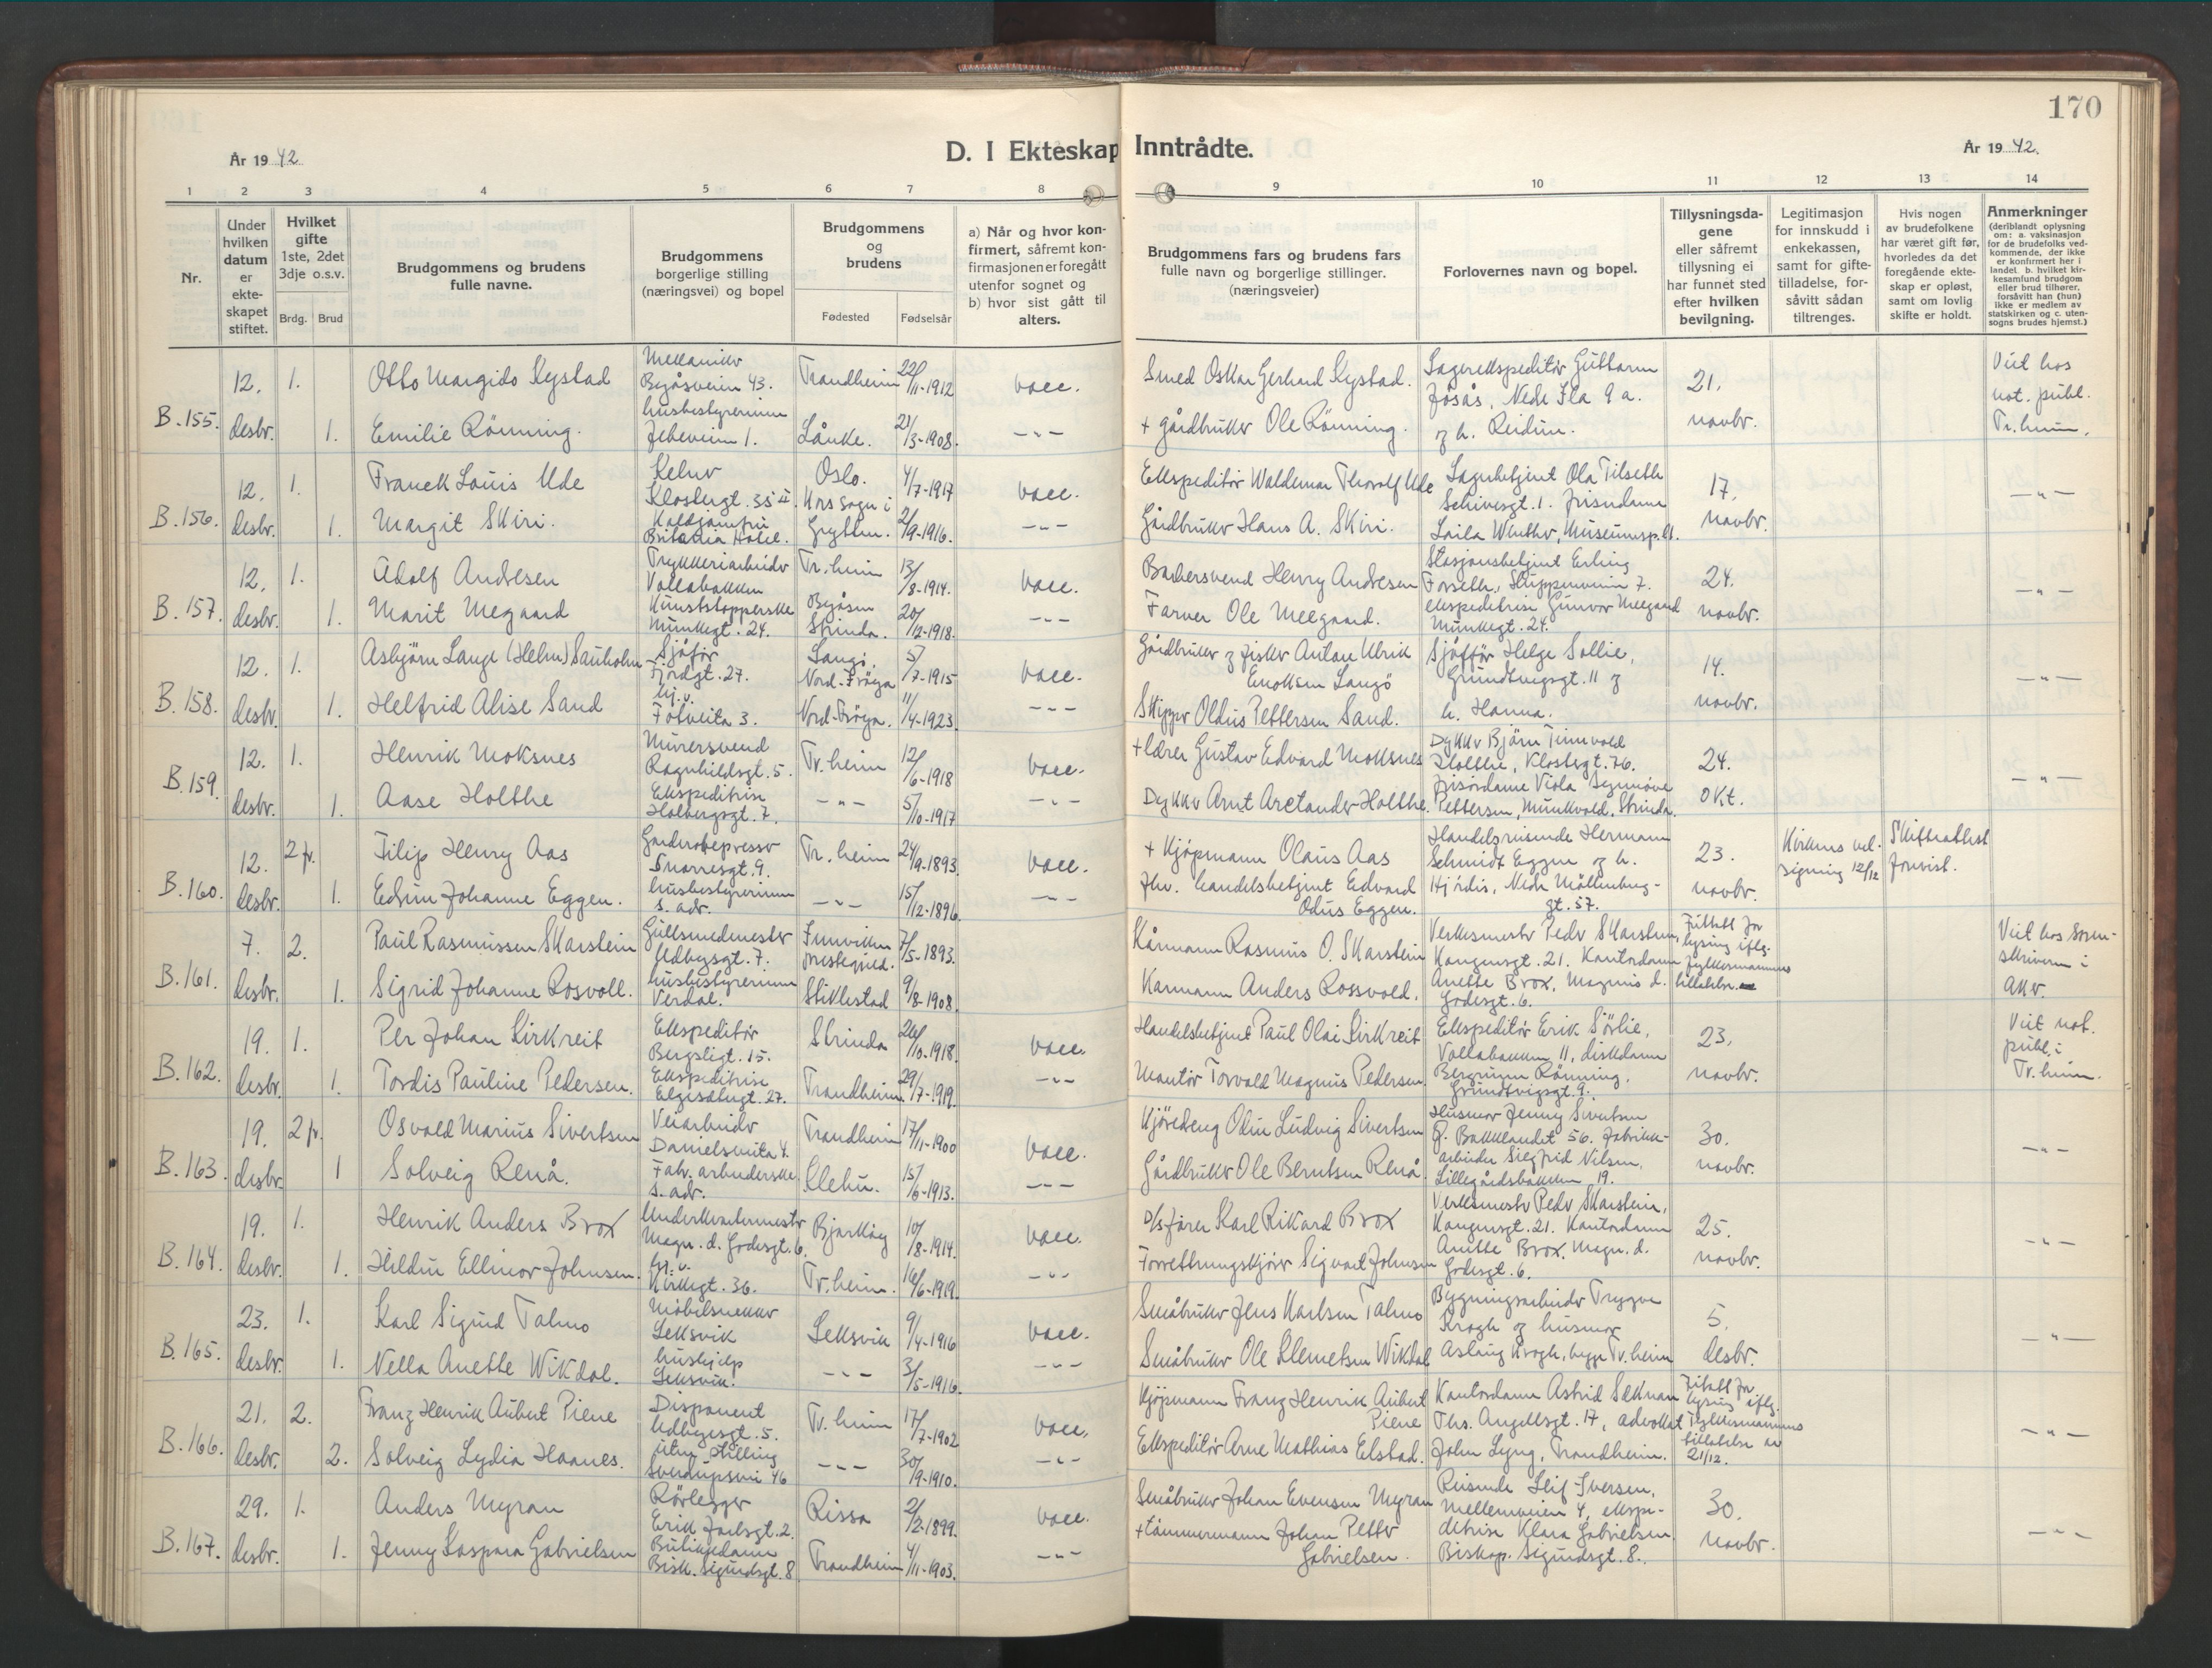 170
År 1942.
D. I Ekteskap Inntrådte.
År 1942.
1 2 3 4 5 6 7 8 9 10 11 12 13 14
Nr.
Under hvilken datum er ekteskapet stiftet.
Hvilket gifte 1ste, 2det 3dje o.s.v.
Brdg. Brud
Brudgommens og brudens fulle navne.
Brudgommens borgerlige stilling (næringsvei) og bopel
Brudgommens og brudens
Fødested Fødselsår
a) Når og hvor konfirmert, såfremt konfirmasjonen er foregått utenfor sognet og b) hvor sist gått til alters.
Brudgommens fars og brudens fars fulle navn og borgerlige stillinger. (næringsveier)
Forlovernes navn og bopel.
Tillysningsdagene eller såfremt tillysning ei har funnet sted efter hvilken bevilgning.
Legitimasjon for innskudd i enkekassen, samt for giftetilladelse, forsåvitt sådan tiltrenges.
Hvis nogen av brudefolkene har været gift før, hvorledes da det foregående ekteskap er opløst, samt om lovlig skifte er holdt.
Anmerkninger (deriblandt oplysning om: a. vaksinasjon for de brudefolks vedkommende, der ikke er konfirmert her i landet. b. hvilket kirkesamfund brudgom eller brud tilhører, forsåvitt han (hun) ikke er medlem av statskirken og c. utensogns brudes hjemst.)
B.155. 12. desbr. 1. Otto Margido Rystad
Mekaniker Byåsveien 43. Trondheim 22/11-1912 vacc.
Smed Oskar Gerhard Rystad.
Lagerekspeditør Guttorm Jøsås, Nedre Ila 9 a. og h. Reidun.
21. novbr.
Viet hos not. publ. Tr.heim.
1. Emilie Rönning.
husbestyrerinne Lånke. 21/3-1908. -"-
+ gårdbruker Ole Rönning.
B.156. 12. desbr. 1. Franck Louis Ude
Kelner Klostergt. 35 II. Oslo. 4/7-1917 vacc.
Ekspeditör Waldemar Thorolf Ude
Lagerbetjent Ola Tilseth Schivesgt. 1.
17. novbr. -"-
1. Margit Skiri.
Koldjomfru Britania Hotel. Grytten. 2/9-1916. -"-
Gårdbruker Hans A. Skiri.
B.157. 12. desbr. 1. Adolf Andresen
Trykkeriarbeider Vollabakken Tr.heim 13/8-1914. vacc.
Barbersvend Henry Andresen
Stasjonsbetjent Erling Forseth,
24. novbr. -"-
1. Marit Megaard
Kunststopperske Munkegt. 24. Byåsen Strinda. 20/12-1918. -"-
Farver Ole Meegaard.
ekspeditrise Gunvor Meegaard Munkegt. 24.
B.158. 12. desbr. 1. Asbjörn Lange (Helm) Sauholm
Sjåför Fjordgt. 27. Nord-Fröya 5/7-1915 vacc.
Gårdbruker og fisker Anton Ulrik Enoksen Langö
Sjåfför Helge Sollie, Grundtvigsgt. 11 og h. Hanna.
14. novbr. -"-
1. Helfrid Alise Sand
hj.v. Fotveita 3. Nord-Fröya. 11/4-1923. -"-
Skipper Oldus Pettersen Sand.
B.159. 12. desbr. 1. Henrik Moksnes
Murersvend Ragnhildsgt. 5. Tr.heim 12/6-1918 vacc.
+ lærer Gustav Edvard Moksnes
Dykker Björn Holthe, Klostergt. 76.
24. okt. -"-
1. Aase Holthe
Ekspeditrise Holbergsgt. 7. -"- 5/10-1917 -"-
Dykker Arnt Arctander Holthe.
Frisördame Viola Pettersen, Munkvold, Strinda.
B.160. 12. desbr. 2 fr. Filip Henry Aas
Garderobepresser Snorresgt. 9. Tr.heim 24/9-1893 vacc.
+ Kjöpmann Olaus Aas
Handelsreisende Hermann Schmidt Eggen og h. Hjördis, Nedre Möllenberggt. 57.
23. novbr.
Kirkens velsigning 12/12
Skifteattest forevist.
1. Edrun Johanne Eggen.
husbestyrerinne s. adr. -"- 15/12-1896. -"-
fhv. handelsbetjent Edvard Odus Eggen.
B.161. 7. desbr. 2. Paul Rasmussen Skarstein
Gullsmedmester Udbysgt. 7. 7/5-1893.
Rasmus O. Skarstein
Verksmester Peder Skarstein, Kongensgt. 21. Kontordame Anette Brox, Magnus d. Godesgt. 6.
Fritatt for lysing iflg. fylkesmannens tillatelse.
Viet hos sorenskriveren i
1. Sigrid Johanne Rosvoll.
husbestyrerinne Verdal. Stiklestad 9/8-1908.
Anders Rossvold.
B.162. 19. desbr. 1. Per Johan Kirkreit
Ekspeditör Bergsligt. 15. Strinda 26/10-1918. vacc.
Handelsbetjent Paul Olai Kirkreit
Ekspeditör Erik Sörlie, Vollabakken 11, diskdame Rönning, Grundtvigsgt. 9.
23. novbr.
Viet not. publ. i Tr.heim.
1. Tordis Pauline Pedersen.
Ekspeditrise Elgesetergt. 27. Trondheim. 29/7-1919. -"-
Montör Torvald Magnus Pedersen
B.163. 19. desbr. 2 fr. Osvald Marius Sivertsen
Veiarbeider Danielsveita 4. Trondheim 17/11-1900 vacc.
Kjöredreng Odin Ludvig Sivertsen
Husmor Jenny Sivertsen Bakklandet 56. Fabrikkarbeider Siegfrid Nilsen, Lillegårdsbakken 19.
30. novbr. -"-
1 Solveig Renå.
Fabr. arbeiderske s. adr. 15/6-1913. -"-
Gårdbruker Ole Berntsen Renå
B.164. 19. desbr. 1. Henrik Anders Brox
Underkvartermester Magn. d. Godesgt. 6. Bjarköy 10/8-1914. vacc.
D/s förer Karl Rikard Brox
Verksmester Peder Skarstein, Kongensgt. 21. Kontordame Anette Brox. Magn. d. Godesgt. 6.
25. novbr. -"-
1. Hildur Ellinor Johnsen.
Kirkegt. 36. Tr.heim. 16/6-1919. -"-
Forretningskjörer Sigvart Johnsen
B.165. 23. desbr. 1. Karl Sigurd Talmo
Möbelsnekker Leksvik Leksvik 9/4-1916 vacc.
Småbruker Jens Karlsen Talmo
Bygningsarbeider Trygve Krogh og husmor Aslaug Krogh, begge Tr.heim
5. desbr. -"-
1. Nella Anette Wikdal.
hushjelp Leksvik. -"- 3/5-1916. -"-
Småbruker Ole Klemetsen Wikdal
B.166. 21. desbr. 2. Franz Henrik Aubert Piene
Disponent Udbyesgt. 5. Tr.heim 17/7-1902 vacc.
Kjöpmann Franz Henrik Aubert Piene
Kontordame Astrid Seknan Ths. Angellsgt. 17, advokat John Lyng, Trondheim.
Fritatt for lysing iflg. Fylkesmannens tillatelse av 21/12.
-"-
2. Solveig Lydia Haanes.
uten stilling Sverdrupsvei 46 -"- 30/9-1910. -"-
Ekspeditör Arne Mathias Elstad.
B.167. 29. desbr. 1. Anders Myran
Rörlegger Erik Jarlsgt. 2. Rissa 2/2-1899. vacc.
Småbruker Johan Evensen Myran
Reisende Leif Iversen, Mellemveien 4, ekspeditrise Klara Gabrielsen, Biskop. Sigurdsgt. 8.
30. novbr. -"-
1. Jenny Kaspara Gabrielsen
Butikkdame Bisk. Sigurdsgt. 8 Trondheim 4/11-1903. -"-
+ tömmermann Johan Petter Gabrielsen.